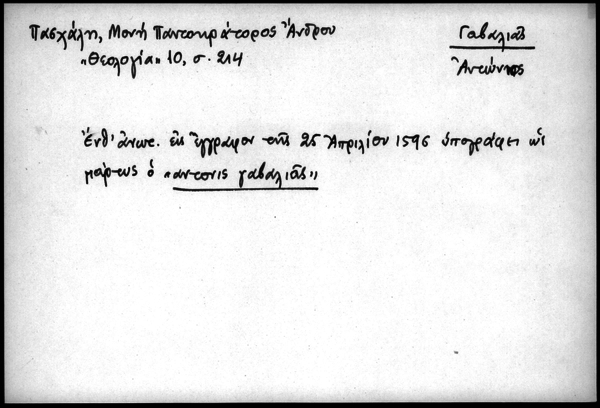 Πασχάλη, Μονή Παντοκράτορος Ἄνδρου
Γαβαλιᾶς
«Θεολογία» 10, σ. 214
Ἀντώνης
Ἔνθ' ἀνωτ. εἰς ἔγγραφον τῆς 25 Ἀπριλίου 1596 ὑπογράφει ὡς
μάρτυς ὁ «αντονις γαβαλιᾶς»